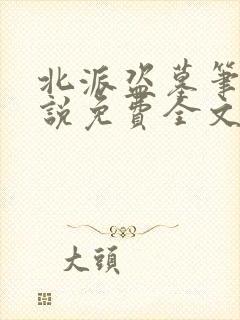 北派盗墓筆
說免費全文
大頭